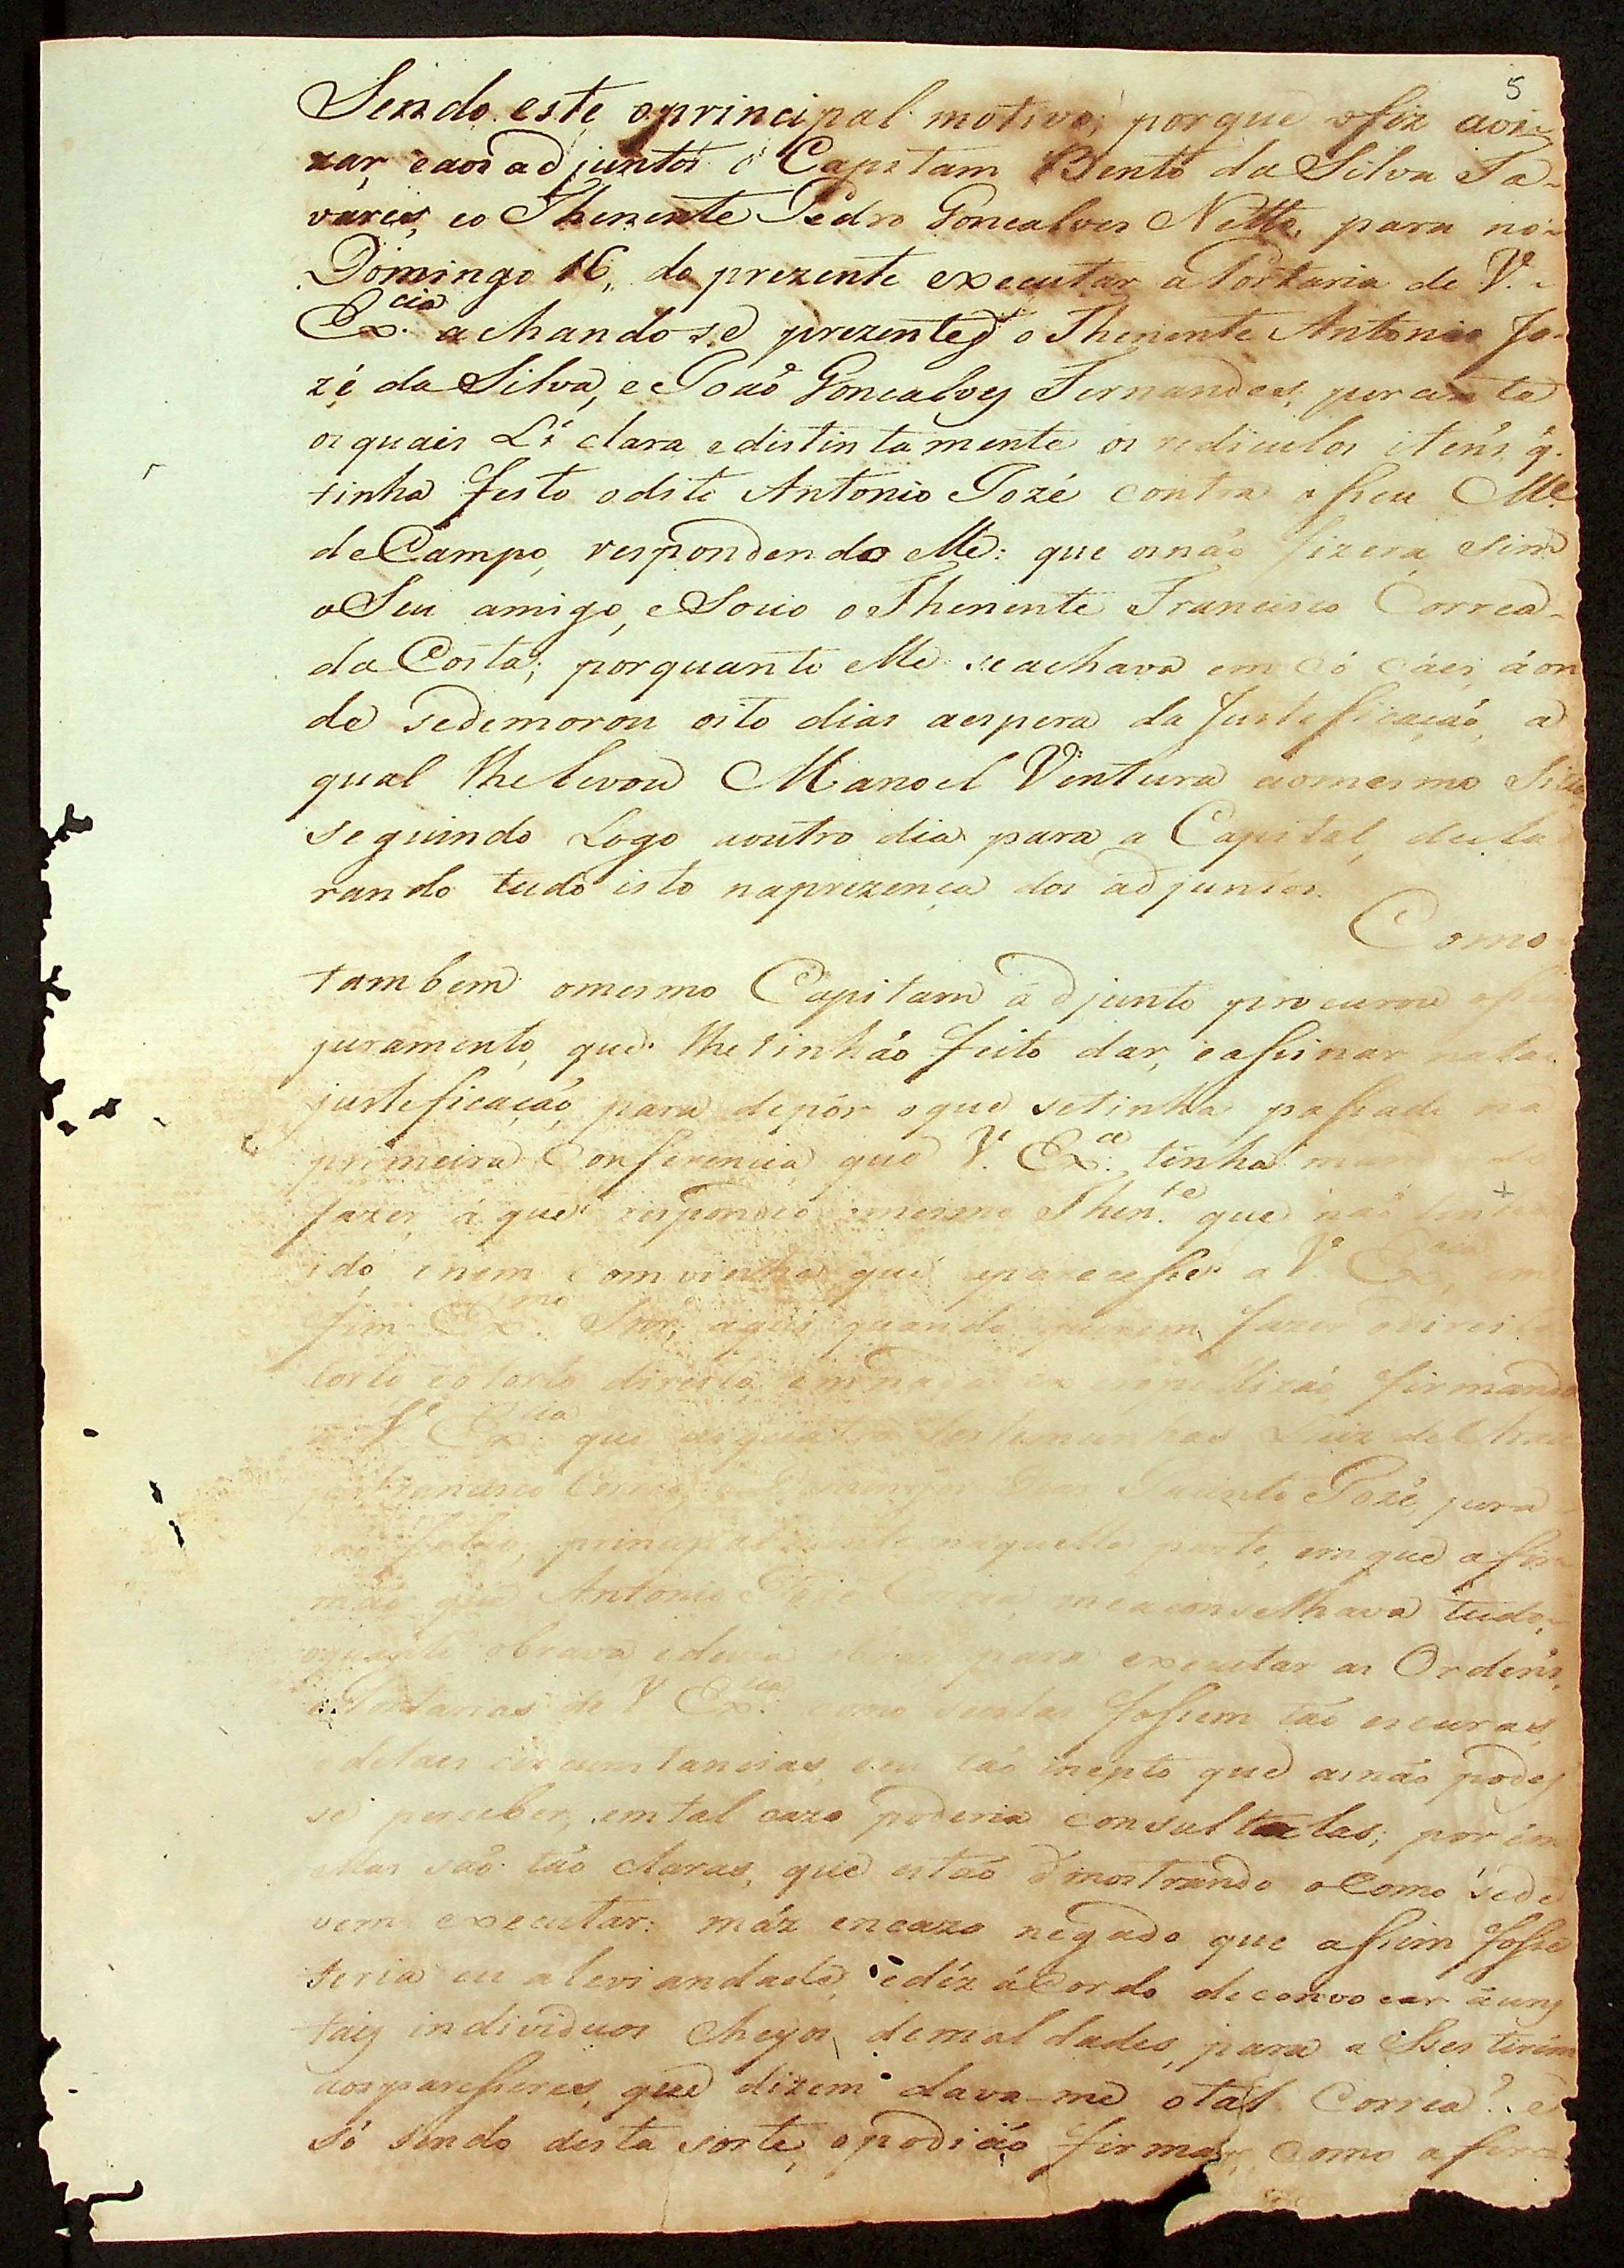 5
Sendo este oprincipal motivo, porque ofiz avi-
zar, e aos adjuntos o Capitam Bento da Silva Ta-
vares, eo Thenente Pedro Goncalves Netto, para no-
Domingo 16, do prezente executar a Portaria de V.ª
Ex.cia achando se prezentes o Thenente Antonio Jo-
zé da Silva, e Joaõ Goncalves Fernandes, perante
os quais Lí clara e distintamente os rediculos itens q.
tinha festo odito Antonio Jozé contra oseu M.e
de Campo, respondendo elle: que os não fizera, e sim
o Seu amigo, e Socio o Thenente Francisco Correa
da Costa; porquanto elle se achava em Có cáes, áon
de sedemorou oito dias aespera da Justeficação, a
qual lhe levou Manoel Ventura aomesmo Sitio
seguindo Logo aoutro dia para a Capital, decla
rando tudo isto naprezença dos adjuntos.
Como
tambem omesmo Capitam ádjunto procurou
juramento, que lhe tinhão feito dar, e assinar natal
justeficação, para depór oque setinha passado na
primeira Conferencia, que V.ª Ex.ca tinha mandado
fazer, á que respondeo omesmo Then.te que não tinha
ido, e nem comvinha que aparecesse a V.ª Ex.cia, em
fim Ex.mo Snr, aqui quando querem fazer odireito
torto e o torto direito, em nada firmando
a V.ª Ex.cia que as quatro testemunhas Luiz de
Francisco Domingos Jacinto Jozé, jura
rão falso, principalmente naquella parte, emque afir
mão que Antonio Jozé Correa, meaconselhava tudo,
oquanto obrava edevia obrar para executar as Ordens,
e Portarias de V.ª Ex.cia como sestas fossem tão escuras,
e detaes circumstancias, e eu tão inepto que as não podes
se perceber, emtal cazo poderia consultalas; porém
ellas são tão claras, que estão dmostrando o Como sede
vem executar: máz encazo negado que assim fosse
teria eu aleviandade, e díz ácordo deconvocar áuns
tais individuos Cheyos demaldades, para assestirem
aospareceres, que dizem dava-me otal Correa? e
só sendo desta sorte, opodião firmar, Como afir